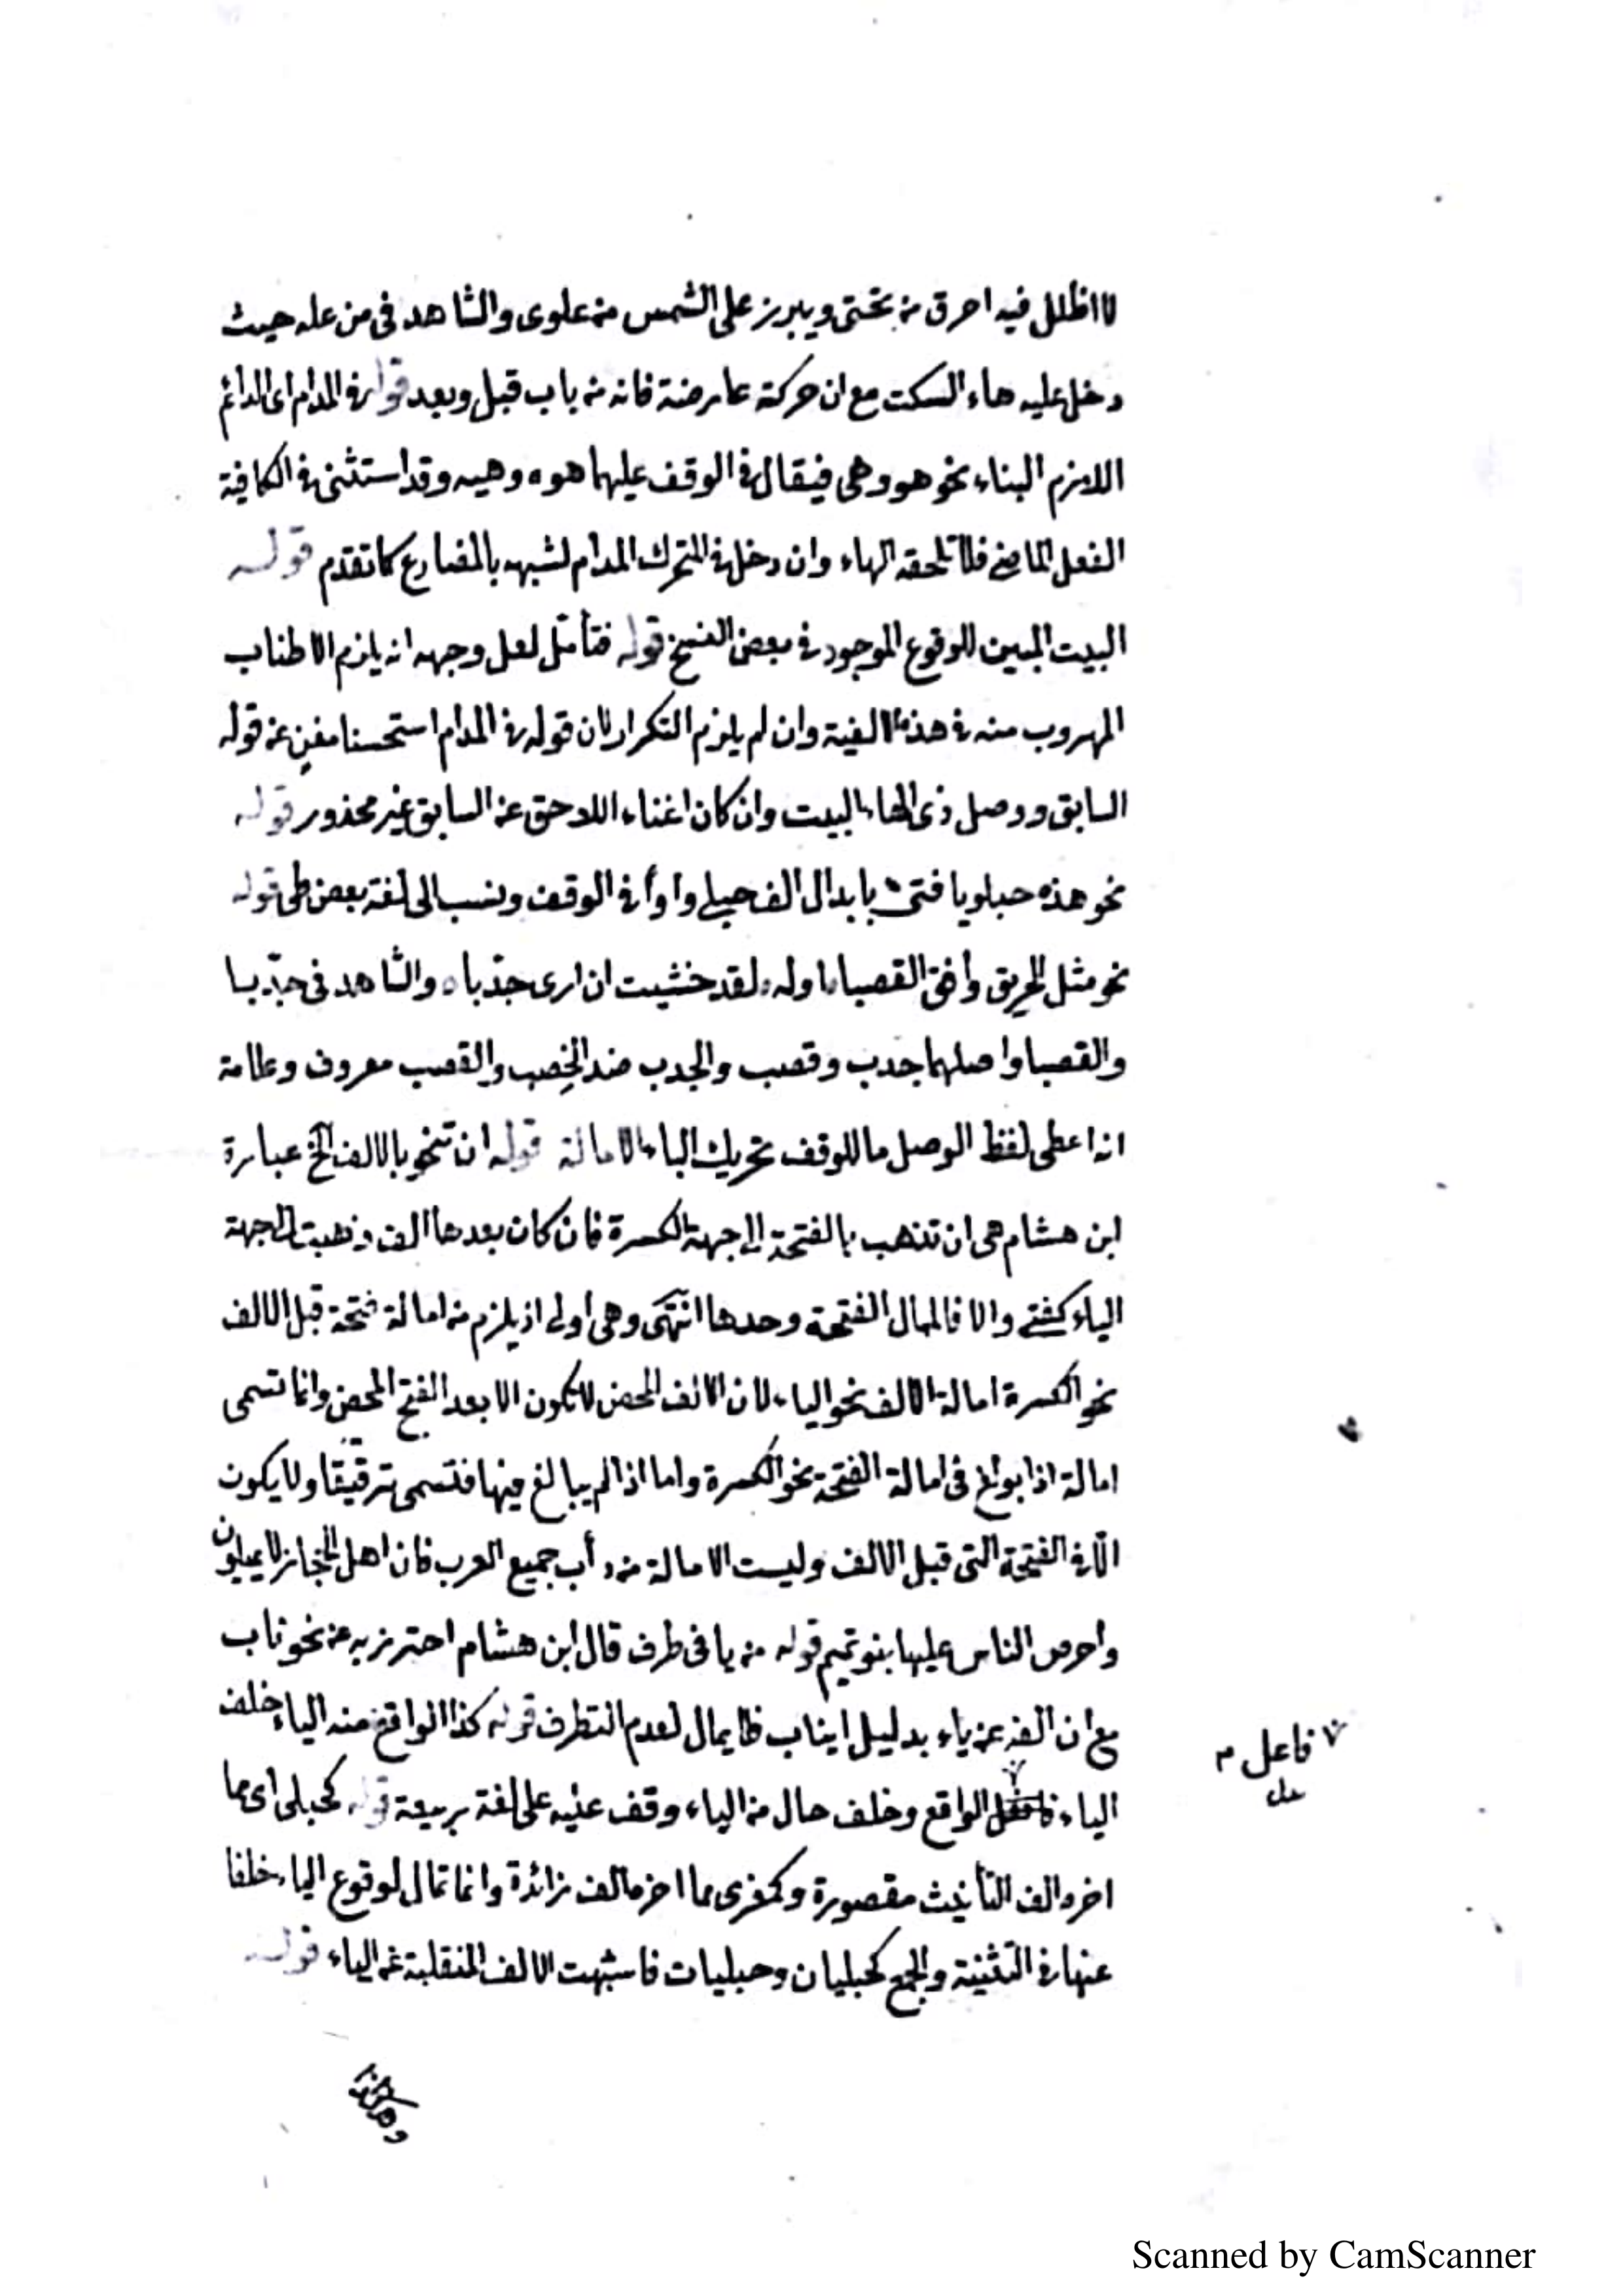 لا اظلل فيه احرق من تحتى ويبرز على الشمس من علوى والشاهد فى من عله حيث
دخل عليه هاء السكت مع ان حركته عارضة فانه من باب قبل وبعد قوله فى المدام اى الدائم
اللازم البناء نحو هو وهى فيقال فى الوقف عليهما هوه وهيه وقد استثنى فى الكافية
الفعل الماضى فلا تلحقه الهاء وان دخل فى المتحرك المدام لشبهه بالمضارع كما تقدم قوله
البيت المبين للوقوع الموجود فى بعض النسخ قوله فتأمل لعل وجهه انه يلزم الاطناب
المهروب منه فى هذه الالفية وان لم يلزم التكرار لان قوله فى المدام استحسنا مغن عن قوله
السابق ووصل ذى الهاء البيت وان كان اغناء اللاحق عن السابق غير محذور قوله
نحو هذه حبلو يا فتى بابدال الف حبلى واوا فى الوقف ونسب الى لغة بعض طى قوله
نحو مثل الحريق وافق القصبا اوله لقد خشيت ان ارى جدبا والشاهد فى جدبا
والقصبا واصلهما جدب وقصب والجدب ضد الخصب والقصب معروف وعلامة
انه اعطى لفظ الوصل ما للوقف تحريك الباء الامالة قوله ان تنحو بالالف الخ عبارة
ابن هشام هى ان تذهب بالفتحة الى جهة الكسرة فان كان بعدها الف ذهبت الى جهة
الياء كفتى والا فالممال الفتحة وحدها انتهى وهى اولى اذ يلزم من امالة فتحة قبل الالف
نحو الكسرة امالة الالف نحو الياء لان الالف المحض لا تكون الا بعد الفتح المحض وانما تسمى
امالة اذا بولغ فى امالة الفتحة نحو الكسرة واما اذا لم يبالغ فيها فتسمى ترقيقا ولا يكون
الا فى الفتحة التى قبل الالف وليست الامالة من دأب جميع العرب فان اهل الحجاز لا يميلون
وأحرص الناس عليها بنو تميم قوله من يا فى طرف قال ابن هشام احترز به عن نحو ناب
مع ان الفه عن ياء بدليل انياب فلا يمال لعدم التطرف قوله كذا الواقع منه الياء خلف
الياء الواقع وخلف حال من الياء وقف عليه على لغة ربيعة قوله كحبلى اى مما
فاعل م
اخره الف التأنيث مقصورة وكمغزى مما اخره الف زائدة وانما تمال لوقوع الياء خلفا
عنها فى التثنية والجمع كحبليان وحبليات فاشبهت الالف المنقلبة عن الياء قوله